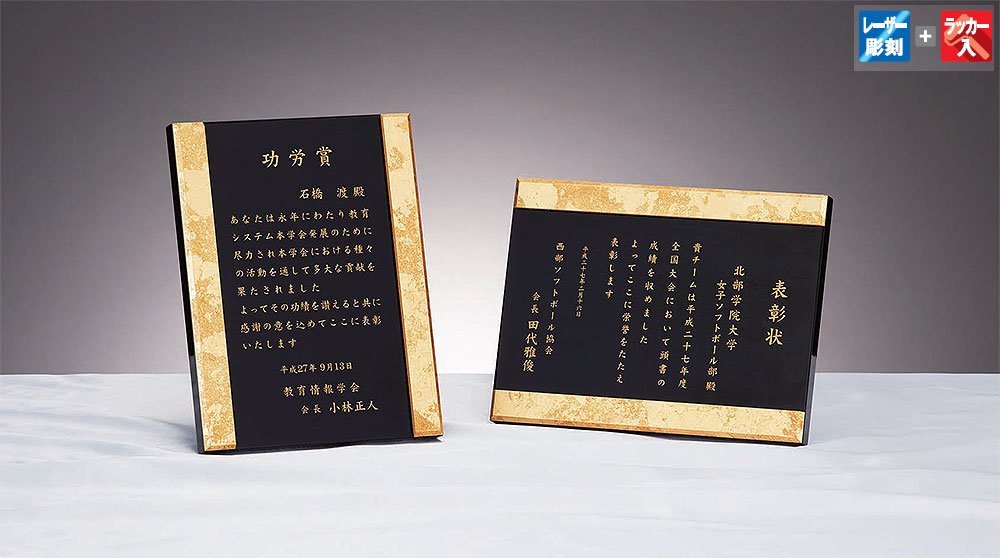 レーザー
彫刻
+
ラッカー
入
功労賞
石橋 渡 殿
あなたは永年にわたり教育
システム本学会発展のために
尽力され本学会における種々
の活動を通して多大な貢献を
果たされました
よってその功績を讃えると共に
感謝の意を込めてここに表彰
いたします
平成27年9月13日
教育情報学会
会長 小林正人
表彰状
北部学院大学
女子ソフトボール部殿
貴チームは平成二十七年度
全国大会において頭書の
成績を収めました
よってここに栄誉をたたえ
表彰します
平成二十七年二月十六日
西部ソフトボール協会
会長 田代雅俊